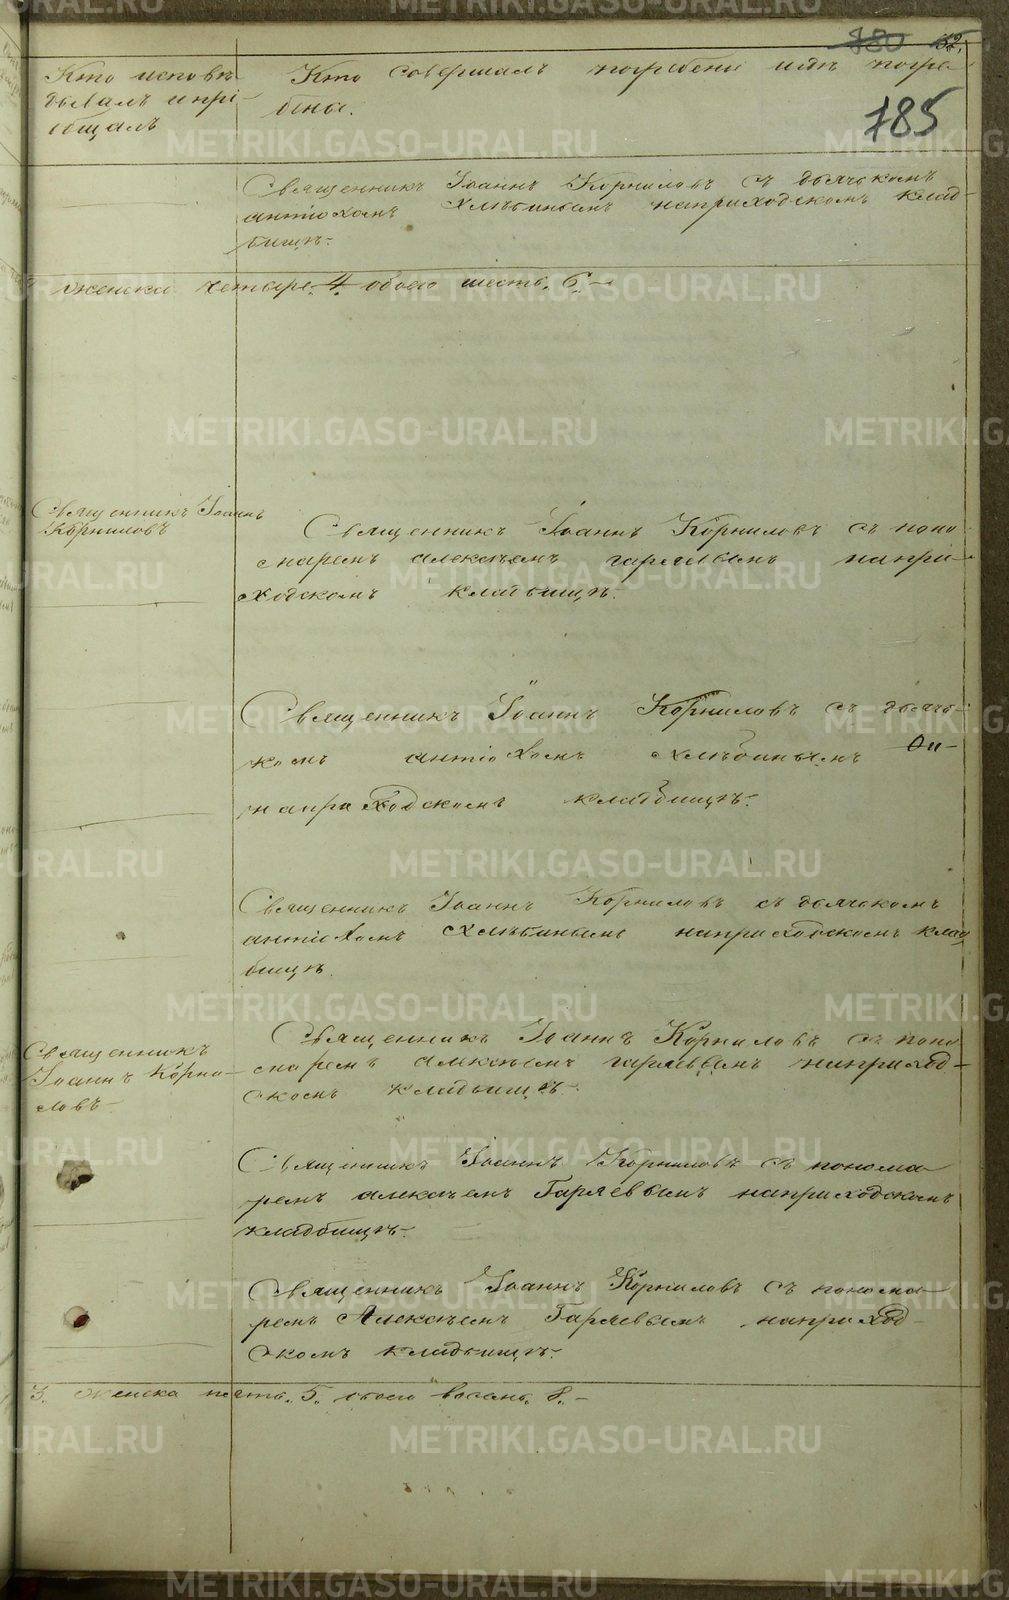 780 52.
185
Кто исповѣ
дывалъ и прі
общалъ
Кто совершалъ погребеніе и гдѣ погре
бены.
Священникъ Іоаннъ Корниловъ съ дьячкомъ
антіохомъ Хлѣбинымъ наприходскомъ клад-
бищѣ.
женска четыре. 4. обоего шесть. 6.
Священникъ Іоаннъ
Корниловъ
Священникъ Іоаннъ Корниловъ съ поно
маремъ алексѣемъ гаряевымъ напри-
ходскомъ кладбищѣ.
Священникъ Іоаннъ Корниловъ съ дьяч-
комъ антіохомъ Хлѣбинымъ
наприходскомъ кладбищѣ.
Священникъ Іоаннъ Корниловъ съ дьячкомъ
антіохомъ Хлѣбинымъ наприходскомъ клад
бищѣ.
Священникъ
Іоаннъ Корни-
ловъ
Священникъ Іоаннъ Корниловъ съ поно
маремъ алексѣемъ гаряевымъ наприход-
скомъ кладбищѣ.
Священникъ Іоаннъ Корниловъ съ понома
ремъ алексѣемъ Гаряевымъ наприходскомъ
кладбищѣ.
Священникъ Іоаннъ Корниловъ съ понома
ремъ Алексѣемъ Гаряевымъ наприход-
скомъ кладбищѣ.
3. женска пять. 5. обоего восемь. 8.
METRIKI.GASO-URAL.RU